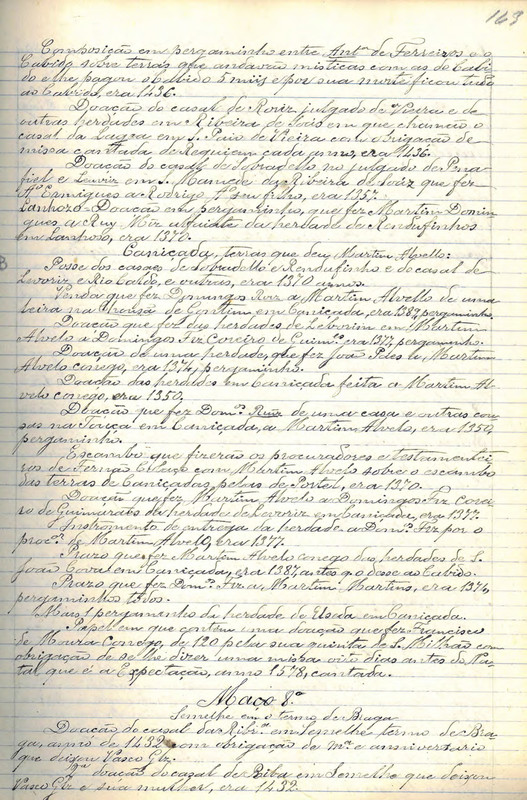 163
Composição em pergaminho entre Antº de Ferreiros e o
Cabido sobre terras que andavão misticas com as do Cabi-
do e lhe pagou o Cabido 5 miis e por sua morte ficou tudo
ao Cabido, era 1436.
Doação do casal de Roriz, julgado de Vieira e de
outras herdades em Ribeira de em que chamão o
casal da Lagea em S. Paio de Vieira com obrigação de
missa cantada de Requiem cada anno, era 1436.
Doação do casal de Sobradelo no julgado de Pena-
fiel e em S. Mamede da Ribeira de que fez
Ermigues a Rodrigo seu filho, era 1357.
Lanhozo - Doação em pergaminho, que fez Martim Domin-
gues, a Ruy Miz abbade da herdade de Rendufinhos
em Lanhoso, era 1370.
Caniçada, terras que deu Martim Alvello:
Posse dos casaes de Sobradello e Rendufinho e do casal de
e Rio Caldo, e outras, era 1370 annos.
Venda que fez Domingos Roiz a Martim Alvello de uma
leira na de Contim, em Caniçada, era 1389, pergaminho.
Doação que fez das herdades de em Martim
Alvelo a Domingos Fiz Coreiro de Guimᵉˢ era 1377, pergaminho.
Doação de uma herdade, que fez João Pires a Martim
Alvelo conego, era 1374, pergaminho.
Doação das herdades em Caniçada feita a Martim Al-
velo conego, era 1350.
Doação que fez Domºˢ Ruiz de uma casa e outras cou-
sas na em Caniçada, a Martim Alvelo, era 1350,
pergaminho.
Escambo que fizerão os procuradores e testamentei-
ros de Fernão com Martim Alvelo sobre o escambo
das terras de Caniçada, pelas de Portel, era 1370.
Doação que fez Martim Alvelo a Domingos Fiz corei-
ro de Guimarães da herdade de em Caniçada, era 1377.
Instromento de entrega da herdade a Domºˢ Fiz por o
procºʳ de Martim Alvello, era 1377.
Prazo que fez Martim Alvelo conego das herdades de S.
João em Caniçada, era 1387, antes q. o desse ao Cabido.
Prazo que fez Domºˢ Fiz a Martim Martins, era 1376,
pergaminhos todos.
Mais 1 pergaminho da herdade de em Caniçada.
Papel em que contém uma doação que fez Francisco
de Moura Conego, de 120 pela sua quinta de S. Milhão com
obrigação de se lhe dizer uma missa oito dias antes do Na-
tal que é a Expectação, anno 1578, cantada.
Maço 8º
Semelhe em o termo de Braga
Doação do casal da Ribᵃ, em Semelhe, termo de Bra-
ga, anno de 1432 com obrigação de mª e anniversario
que deixou Vasco Glz.
2ª doação do casal de Riba em Semelhe que deixou
Vasco Glz e sua mulher, era 1432.